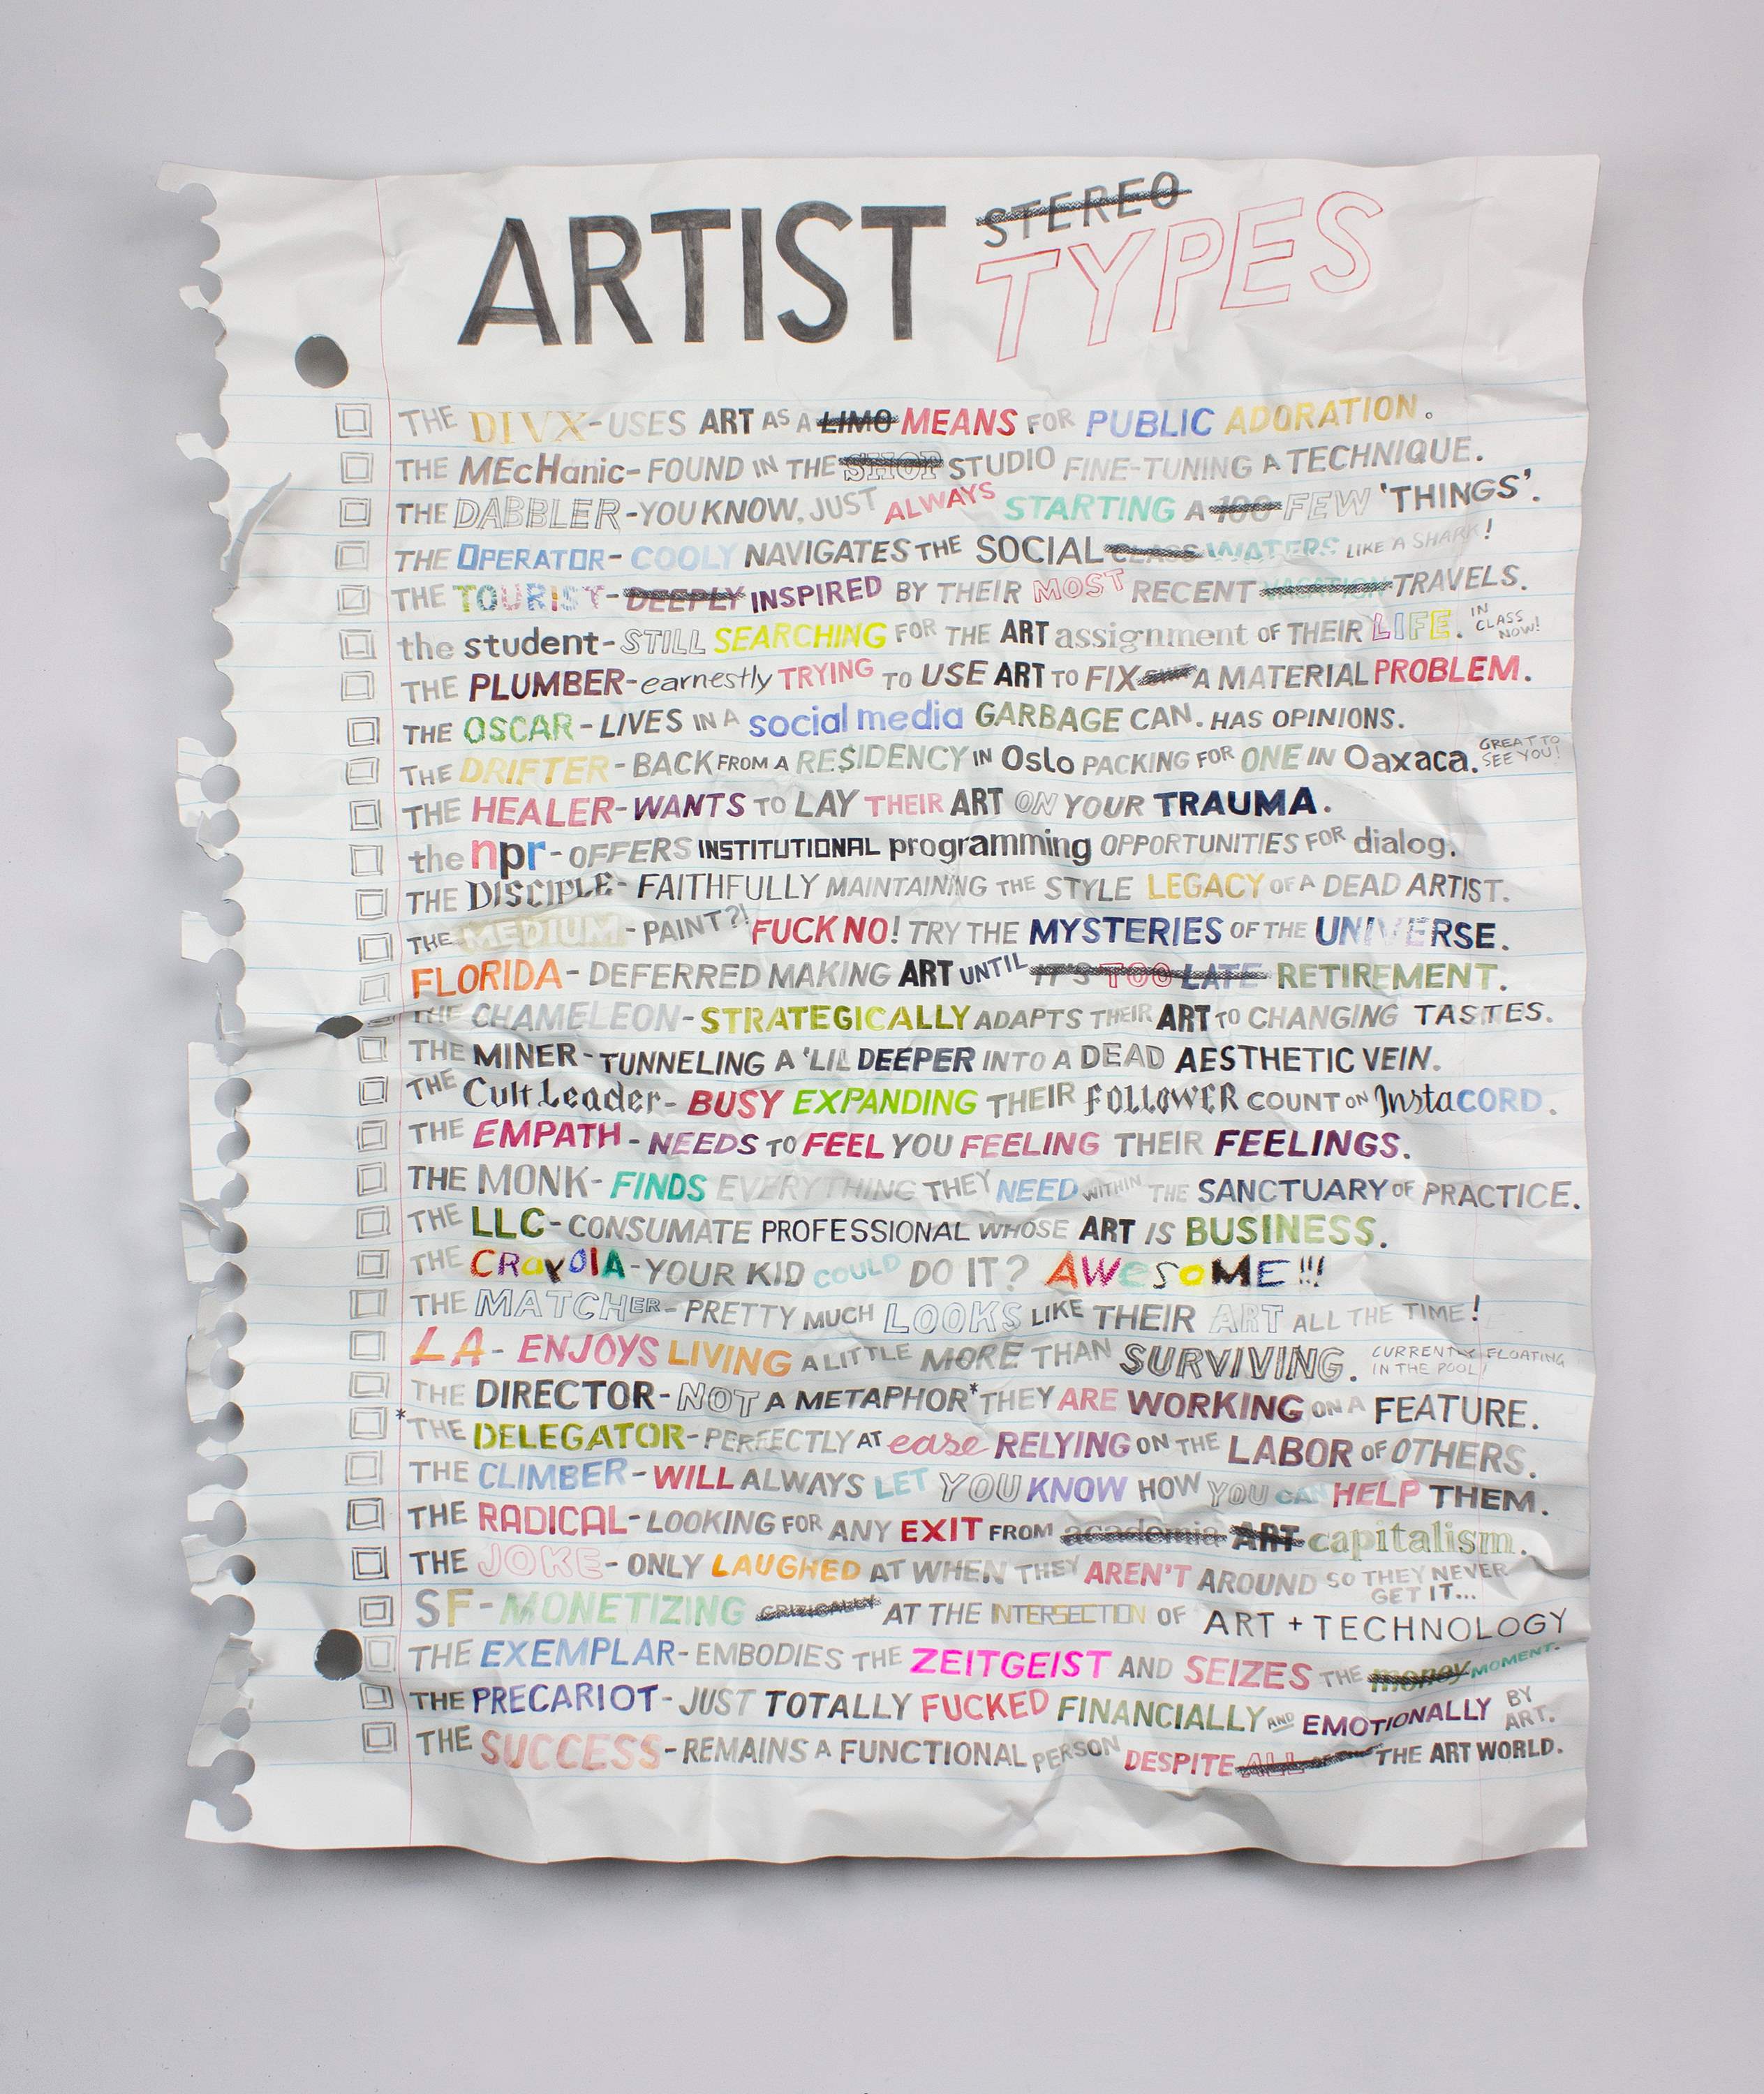 STEREO
ARTIST TYPES
THE DIVX-USES ART AS A LIMO MEANS FOR PUBLIC ADORATION.
THE MEcHanic-FOUND IN THE SHOP STUDIO FINE-TUNING A TECHNIQUE.
THE DABBLER-YOU KNOW, JUST ALWAYS STARTING A 100 FEW 'THINGS'.
THE OPERATOR-COOLY NAVIGATES THE SOCIAL CLASS WATERS LIKE A SHARK!
THE TOURIST-DEEPLY INSPIRED BY THEIR MOST RECENT VACATION TRAVELS.
the student-STILL SEARCHING FOR THE ART assignment OF THEIR LIFE. IN CLASS NOW!
THE PLUMBER-earnestly TRYING TO USE ART TO FIX A MATERIAL PROBLEM.
THE OSCAR-LIVES IN A social media GARBAGE CAN. HAS OPINIONS.
THE DRIFTER-BACK FROM A RE$IDENCY IN Oslo PACKING FOR ONE IN Oaxaca. GREAT TO SEE YOU!
THE HEALER-WANTS TO LAY THEIR ART ON YOUR TRAUMA.
the npr-OFFERS INSTITUTIONAL programming OPPORTUNITIES FOR dialog.
THE DISCIPLE-FAITHFULLY MAINTAINING THE STYLE LEGACY OF A DEAD ARTIST.
THE MEDIUM-PAINT?! FUCK NO! TRY THE MYSTERIES OF THE UNIVERSE.
FLORIDA-DEFERRED MAKING ART UNTIL IT'S TOO LATE RETIREMENT.
THE CHAMELEON-STRATEGICALLY ADAPTS THEIR ART TO CHANGING TASTES.
THE MINER-TUNNELING A 'LIL DEEPER INTO A DEAD AESTHETIC VEIN.
THE Cult Leader-BUSY EXPANDING THEIR FOLLOWER COUNT ON InstaCORD.
THE EMPATH-NEEDS TO FEEL YOU FEELING THEIR FEELINGS.
THE MONK-FINDS EVERYTHING THEY NEED WITHIN THE SANCTUARY OF PRACTICE.
THE LLC-CONSUMATE PROFESSIONAL WHOSE ART IS BUSINESS.
THE CRayOlA-YOUR KID COULD DO IT? AWeSoME!!!
THE MATCHER-PRETTY MUCH LOOKS LIKE THEIR ART ALL THE TIME!
LA-ENJOYS LIVING A LITTLE MORE THAN SURVIVING. CURRENTLY FLOATING IN THE POOL!
THE DIRECTOR-NOT A METAPHOR* THEY ARE WORKING ON A FEATURE.
*THE DELEGATOR-PERFECTLY AT ease RELYING ON THE LABOR OF OTHERS.
THE CLIMBER-WILL ALWAYS LET YOU KNOW HOW YOU CAN HELP THEM.
THE RADICAL-LOOKING FOR ANY EXIT FROM academia ART capitalism.
THE JOKE-ONLY LAUGHED AT WHEN THEY AREN'T AROUND SO THEY NEVER GET IT...
SF-MONETIZING CRITICALITY AT THE INTERSECTION OF ART + TECHNOLOGY
THE EXEMPLAR-EMBODIES THE ZEITGEIST AND SEIZES THE money MOMENT.
THE PRECARIOT-JUST TOTALLY FUCKED FINANCIALLY AND EMOTIONALLY BY ART.
THE SUCCESS-REMAINS A FUNCTIONAL PERSON DESPITE ALL THE ART WORLD.